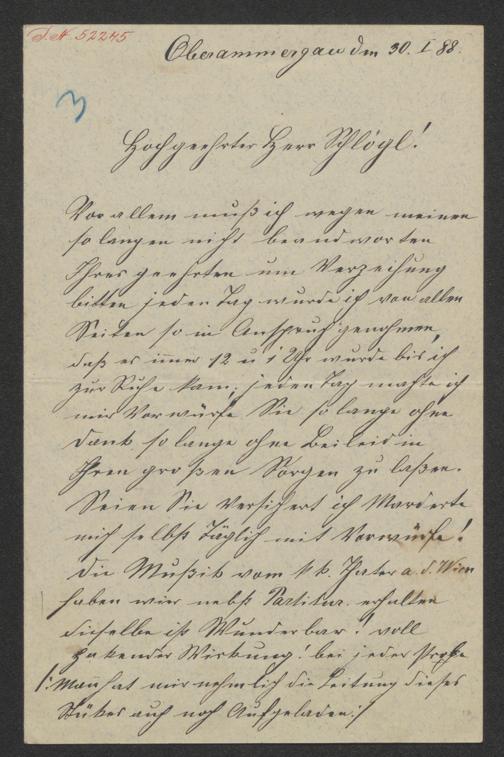 J.N. 52245
Oberammergau den 30. I 88.
3
Hochgeehrter Herr Schlögl!
Vor allem muß ich wegen meinen
so langen nicht beandworten
Ihres geehrten um Verzeihung
bitten jeden Tag wurde ich von allen
Seiten so in Anspruch genohmen,
daß es imer 12 u 1 Uhr wurde bis ich
zur Ruhe kam; jeden Tag machte ich
mir Vorwürfe Sie so lange ohne
Dank so lange ohne Beileid in
Ihren großen Sorgen zu laßen.
Seien Sie versichert ich Marderte
mich selbst täglich mit Vorwürfe!
Die Mußik vom k k. Theater a. d. Wien
haben wir nebst Partitur erhalten
dieselbe ist Wunderbar! voll
pakender Wirkung! bei jeder Probe
/: Man hat mir nehmlich die Leitung dieses
Stükes auch noch Aufgeladen :/